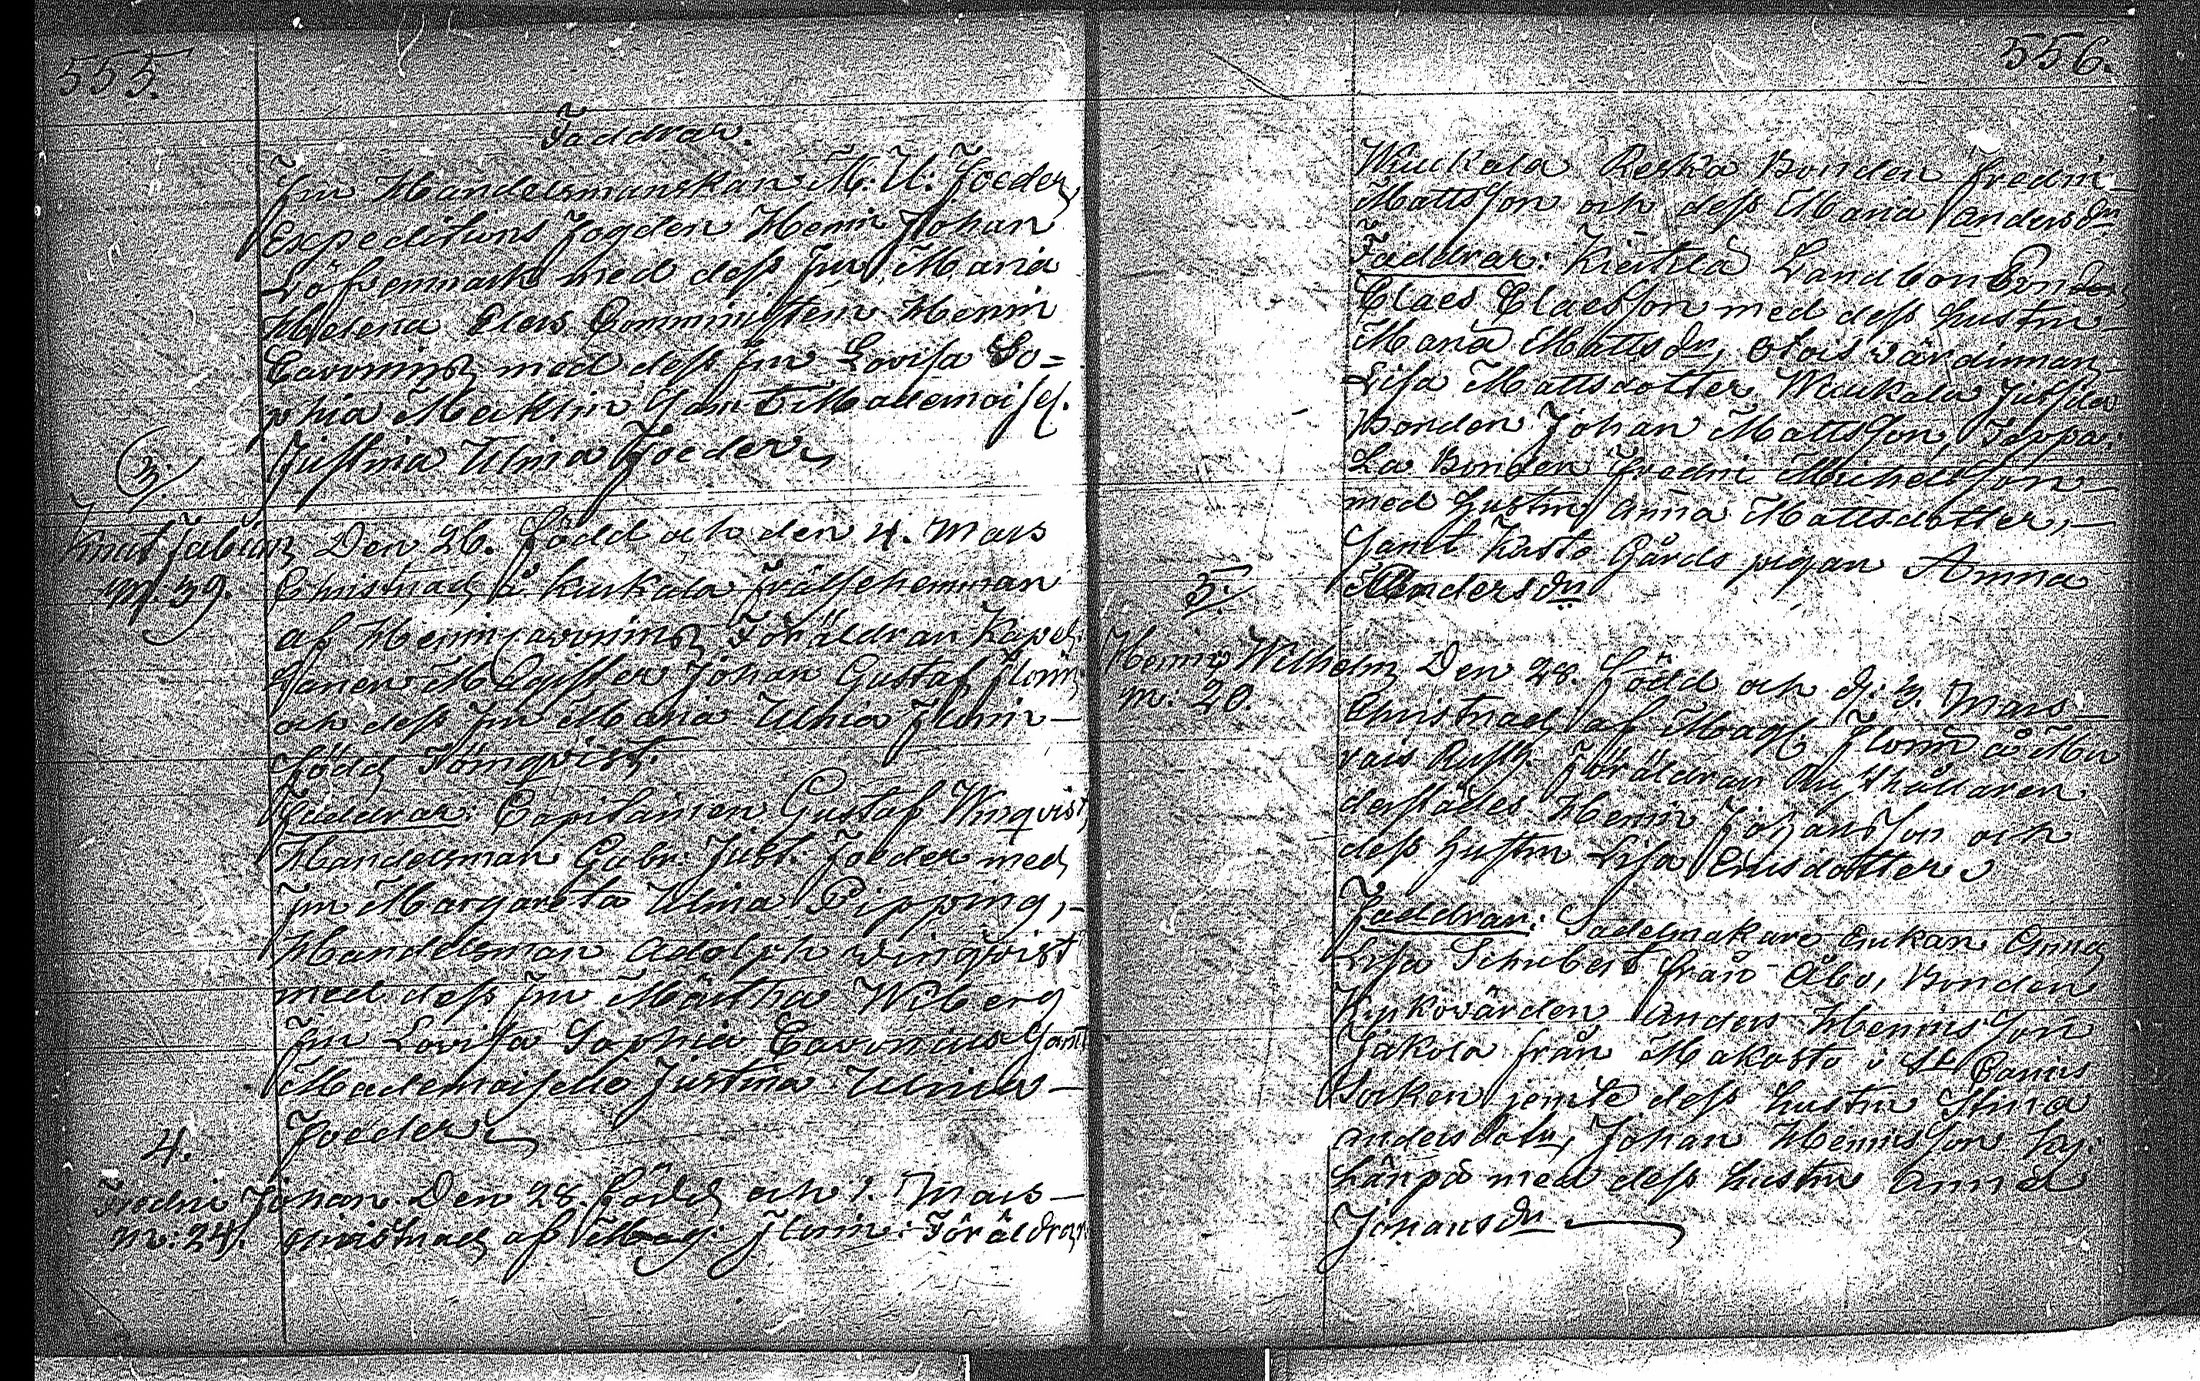 555.
Faddrar.
Fru Handelsmanskan M. U. Joeder,
Expeditions Fogden Henric Johan
Löfvenmark med dess fru Maria
Helena Commini­stern Henric
Cavonius med dess fru Lovisa So=
phia Mecklin samt Mademoisel.
Justina Ulrica Joeder
3.
Knut Fabian Den 26. född och den 4. Mars
m. 39. Christnad å Kuckala Frälsehemman
af Henric Cavonius Föräldrar Kapel,
lanen Magister Johan Gustaf Florin
och dess fru Maria Ulrica Florin
född Törnqvist.
Faddrar: Capitainen Gustaf Winqvist,
Handelsman Gabr. Just. Joeder med
fru Margareta Ulrica Pipping,
Handelsman Adolph Winqvist
med dess fru Märtha Wiberg
fru Lovisa Sophia Cavonius samt
Mademoiselle Justina Ulrica
Joeder
4.
Fredric Johan Den 28. född och 1. Mars
m: 24. christnad af Mag: Florin: Föräldrar
556.
Wuukala Reska Bonden Fredric
Mattsson och dess Maria Andersdr
Faddrar: Landbonden
Claes Claesson med dess hustru
Maria Mattsdr,
Lisa Mattsdotter Wuukala
Bonden Johan Mattsson,
la Bonden Fredric Michelsson
med hustru Anna Mattsdotter,
samt Gårds pigan Anna
Andersdr
5.
Henric Wilhelm Den 28. född och d. 3. Mars
m: 20. Christnad af Mag. Florin å
Rusth. Föräldrar Rusthållaren
derstädes Henric Johansson och
dess hustru Lisa Ericsdotter
Faddrar: Sadelmakare Enkan Anna
Lisa Schubert från Åbo, Bonden
Kyrkovärden Anders Henricsson
Jakola från Makosto i St. Carins
Socken jemte dess hustru Stina
Andersdotr, Johan Henricsson
med dess hustru Anna
Johansdr